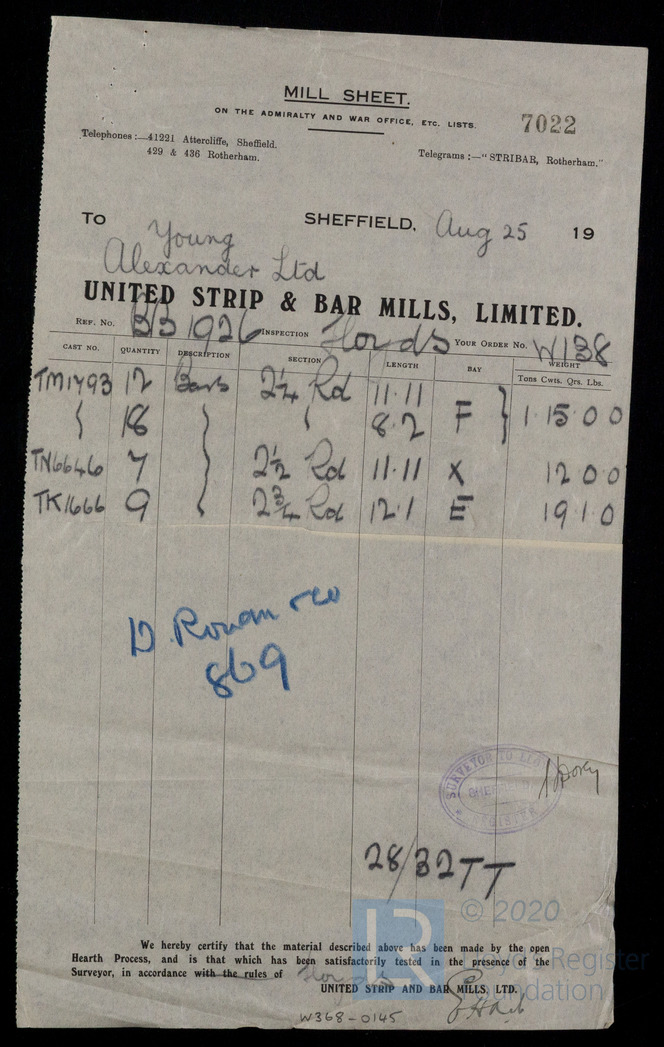 MILL SHEET.
ON THE ADMIRALTY AND WAR OFFICE, ETC. LISTS.
7022
Telephones :—41221 Attercliffe, Sheffield.
429 & 436 Rotherham.
Telegrams :—"STRIBAR, Rotherham."
TO Young SHEFFIELD, Aug 25 19
Alexander Ltd
UNITED STRIP & BAR MILLS, LIMITED.
REF. NO. B31926 INSPECTION Lloyds YOUR ORDER NO. W138
CAST NO. QUANTITY DESCRIPTION SECTION LENGTH BAY WEIGHT
Tons Cwts. Qrs. Lbs.
TM1493 12 Bars 2 1/4 Rd 11.11
18 8.2 F 1 15 0 0
TN6646 7 2 1/2 Rd 11.11 X 12 0 0
TK1666 9 2 3/4 Rd 12.1 E 19 1 0
D. Rowan & Co
869
SURVEYOR TO LLOYD'S
SHEFFIELD
REGISTER
28/32 TT
© 2020
LR Lloyd's Register
Foundation
We hereby certify that the material described above has been made by the open
Hearth Process, and is that which has been satisfactorily tested in the presence of the
Surveyor, in accordance with the rules of Lloyds
UNITED STRIP AND BAR MILLS, LTD.
W368-0145